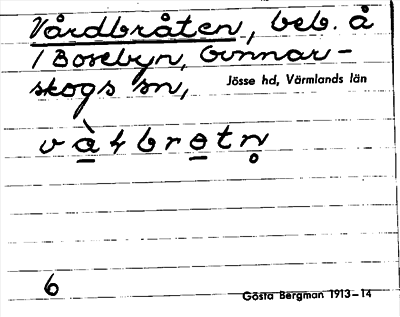 Vårdbråten, beb. å
1 Bosebyn, Gunnar-
skogs sn,
Jösse hd, Värmlands län
và4bretn̥
6
Gösta Bergman 1913–14